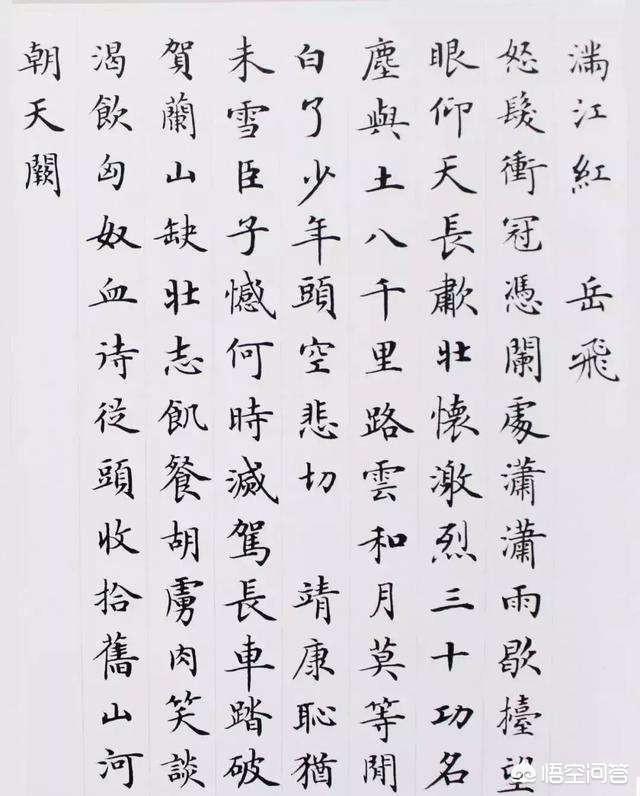 滿江紅 岳飛
怒髮衝冠憑闌處瀟瀟雨歇擡望
眼仰天長歗壯懷激烈三十功名
塵與土八千里路雲和月莫等閒
白了少年頭空悲切 靖康恥猶
未雪臣子憾何時滅駕長車踏破
賀蘭山缺壯志飢餐胡虜肉笑談
渴飲匈奴血待從頭收拾舊山河
朝天闕
悟空问答